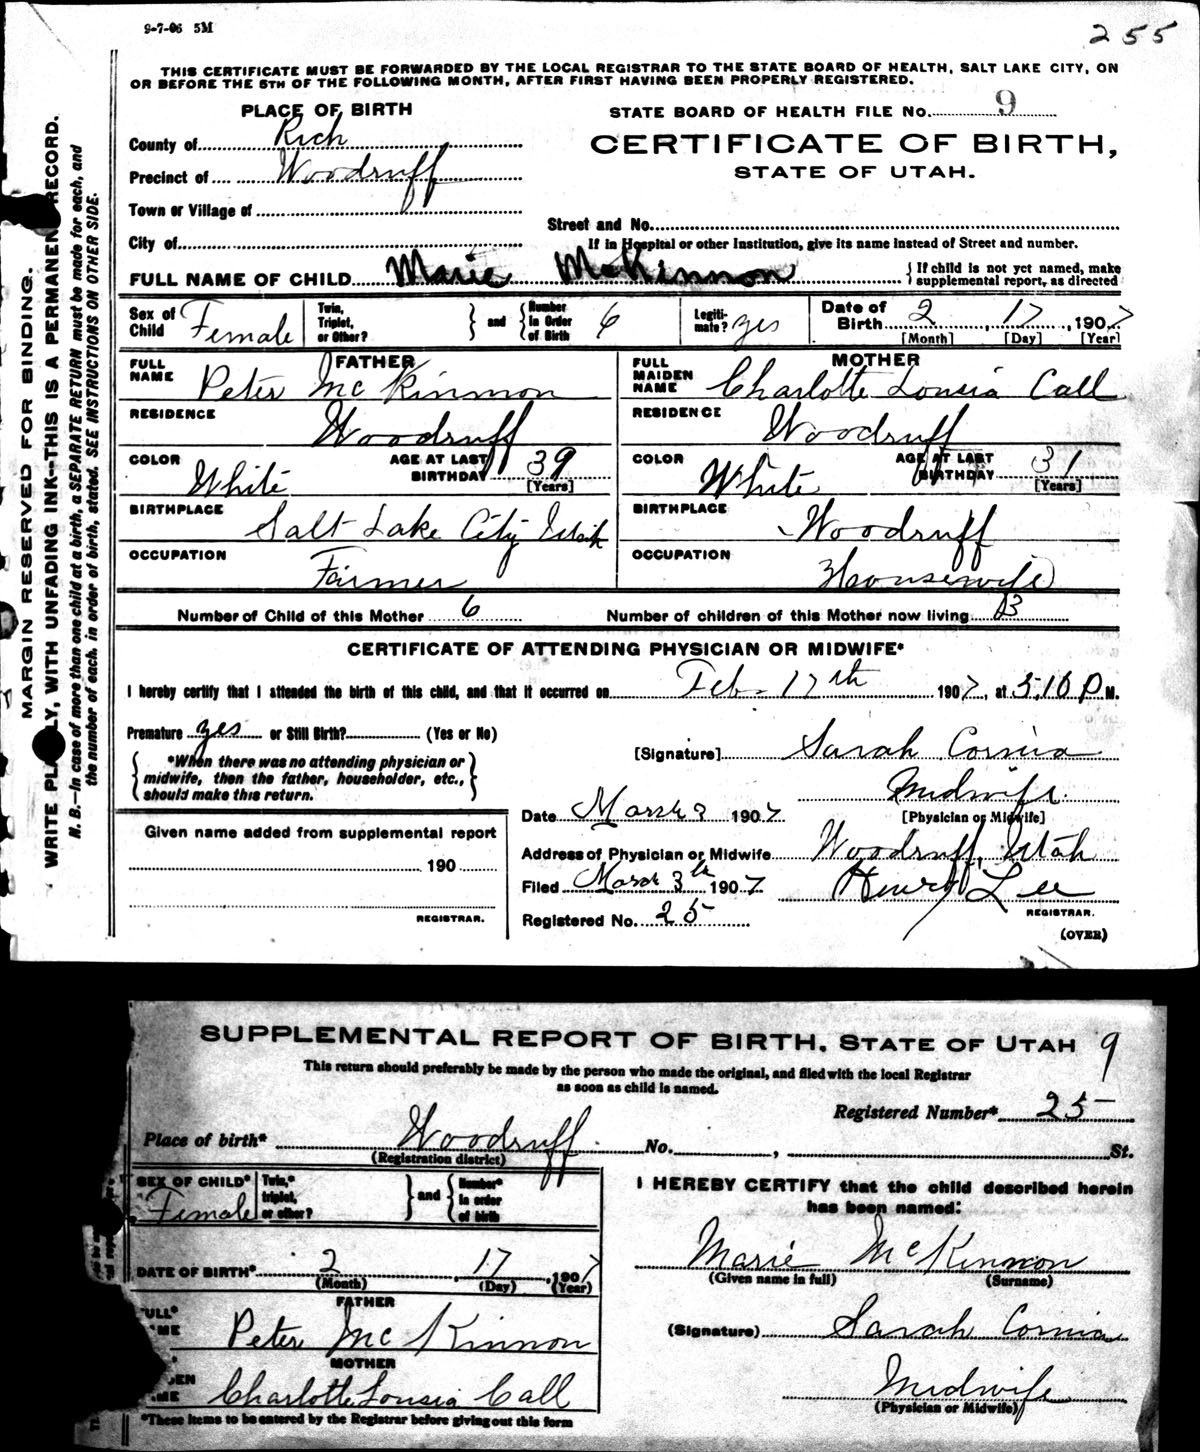 9-7-06 5M
255
THIS CERTIFICATE MUST BE FORWARDED BY THE LOCAL REGISTRAR TO THE STATE BOARD OF HEALTH, SALT LAKE CITY, ON
OR BEFORE THE 5TH OF THE FOLLOWING MONTH, AFTER FIRST HAVING BEEN PROPERLY REGISTERED.
PLACE OF BIRTH
STATE BOARD OF HEALTH FILE No. 9
County of Rich
CERTIFICATE OF BIRTH,
Precinct of Woodruff
STATE OF UTAH.
Town or Village of
Street and No.
City of
If in Hospital or other Institution, give its name instead of Street and number.
FULL NAME OF CHILD Marie McKinnon
{If child is not yet named, make
supplemental report, as directed
Sex of Child Female
Twin, Triplet, or Other? } and { Number In Order of Birth 6
Legitimate? yes
Date of Birth 2, 17, 1907
[Month] [Day] [Year]
FATHER
MOTHER
FULL NAME Peter McKinnon
FULL MAIDEN NAME Charlotte Lousia Call
RESIDENCE Woodruff
RESIDENCE Woodruff
COLOR White AGE AT LAST BIRTHDAY 39 [Years]
COLOR White AGE AT LAST BIRTHDAY 31 [Years]
BIRTHPLACE Salt Lake City Utah
BIRTHPLACE Woodruff
OCCUPATION Farmer
OCCUPATION Housewife
Number of Child of this Mother 6
Number of children of this Mother now living
CERTIFICATE OF ATTENDING PHYSICIAN OR MIDWIFE*
I hereby certify that I attended the birth of this child, and that it occurred on Feb. 17th 1907, at 5,10 P M.
Premature yes or Still Birth? (Yes or No)
[Signature] Sarah Cornia
{ *When there was no attending physician or
midwife, then the father, householder, etc.,
should make this return. }
Midwife
[Physician or Midwife]
Date March 3 1907
Given name added from supplemental report
190
REGISTRAR.
Address of Physician or Midwife Woodruff, Utah
Filed March 3th 1907 Henry Lee
REGISTRAR.
Registered No. 25
(OVER)
MARGIN RESERVED FOR BINDING.
WRITE PLAINLY, WITH UNFADING INK--THIS IS A PERMANENT RECORD.
N. B.—In case of more than one child at a birth, a SEPARATE RETURN must be made for each, and
the number of each, in order of birth, stated. SEE INSTRUCTIONS ON OTHER SIDE.
SUPPLEMENTAL REPORT OF BIRTH, STATE OF UTAH 9
This return should preferably be made by the person who made the original, and filed with the local Registrar
as soon as child is named.
Registered Number* 25
Place of birth* Woodruff No. , St.
(Registration district)
SEX OF CHILD* Female
Twin,* triplet, or other? } and { Number* In order of birth
I HEREBY CERTIFY that the child described herein
has been named:
Marie McKinnon
(Given name in full) (Surname)
DATE OF BIRTH* 2, 17, 1907
(Month) (Day) (Year)
FATHER
Peter McKinnon
(Signature) Sarah Cornia
MOTHER
Charlotte Lousia Call
Midwife
(Physician or Midwife)
*These items to be entered by the Registrar before giving out this form